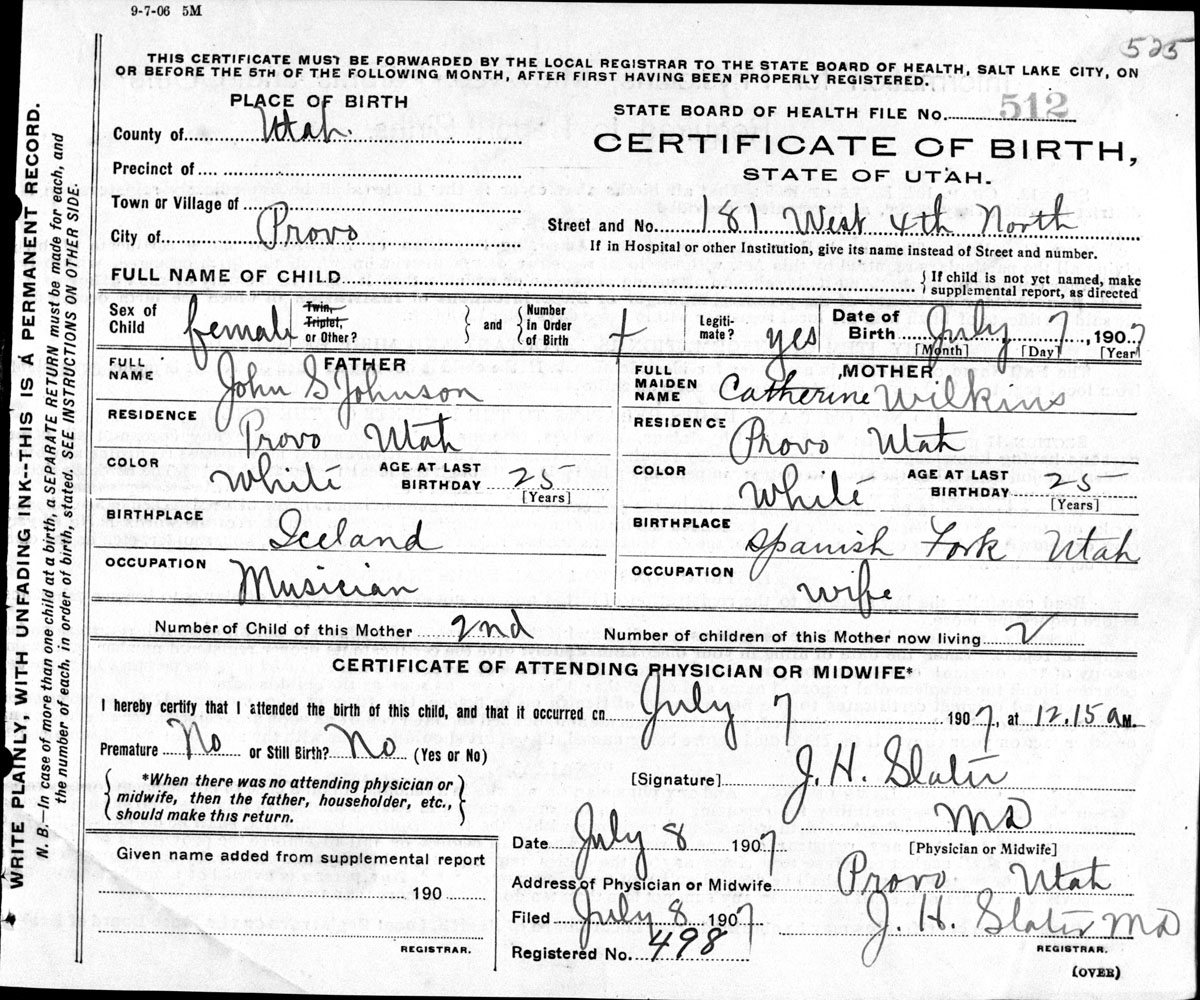 9-7-06 5M
525
THIS CERTIFICATE MUST BE FORWARDED BY THE LOCAL REGISTRAR TO THE STATE BOARD OF HEALTH, SALT LAKE CITY, ON
OR BEFORE THE 5TH OF THE FOLLOWING MONTH, AFTER FIRST HAVING BEEN PROPERLY REGISTERED.
WRITE PLAINLY, WITH UNFADING INK--THIS IS A PERMANENT RECORD.
N. B.—In case of more than one child at a birth, a SEPARATE RETURN must be made for each, and
the number of each, in order of birth, stated. SEE INSTRUCTIONS ON OTHER SIDE.
PLACE OF BIRTH
County of Utah
Precinct of
Town or Village of
City of Provo
STATE BOARD OF HEALTH FILE No. 512
CERTIFICATE OF BIRTH,
STATE OF UTAH.
Street and No. 181 West 4th North
If in Hospital or other Institution, give its name instead of Street and number.
FULL NAME OF CHILD
If child is not yet named, make
supplemental report, as directed
Sex of Child female Twin, Triplet, or Other? and Number in Order of Birth Legiti-mate? yes Date of Birth July 7, 1907
[Month] [Day] [Year]
FATHER
FULL NAME John G Johnson
RESIDENCE
Provo Utah
COLOR White AGE AT LAST BIRTHDAY 25
[Years]
BIRTHPLACE
Iceland
OCCUPATION
Musician
MOTHER
FULL MAIDEN NAME Catherine Wilkins
RESIDENCE
Provo Utah
COLOR White AGE AT LAST BIRTHDAY 25
[Years]
BIRTHPLACE
Spanish Fork Utah
OCCUPATION
wife
Number of Child of this Mother 2nd Number of children of this Mother now living 2
CERTIFICATE OF ATTENDING PHYSICIAN OR MIDWIFE*
I hereby certify that I attended the birth of this child, and that it occurred on July 7 1907, at 12.15 a M.
Premature No or Still Birth? No (Yes or No)
*When there was no attending physician or
midwife, then the father, householder, etc.,
should make this return.
[Signature] J. H. Slater
MD
[Physician or Midwife]
Given name added from supplemental report
190
REGISTRAR.
Date July 8 1907
Address of Physician or Midwife Provo Utah
Filed July 8 1907 J. H. Slater MD
REGISTRAR.
Registered No. 498
(OVER)